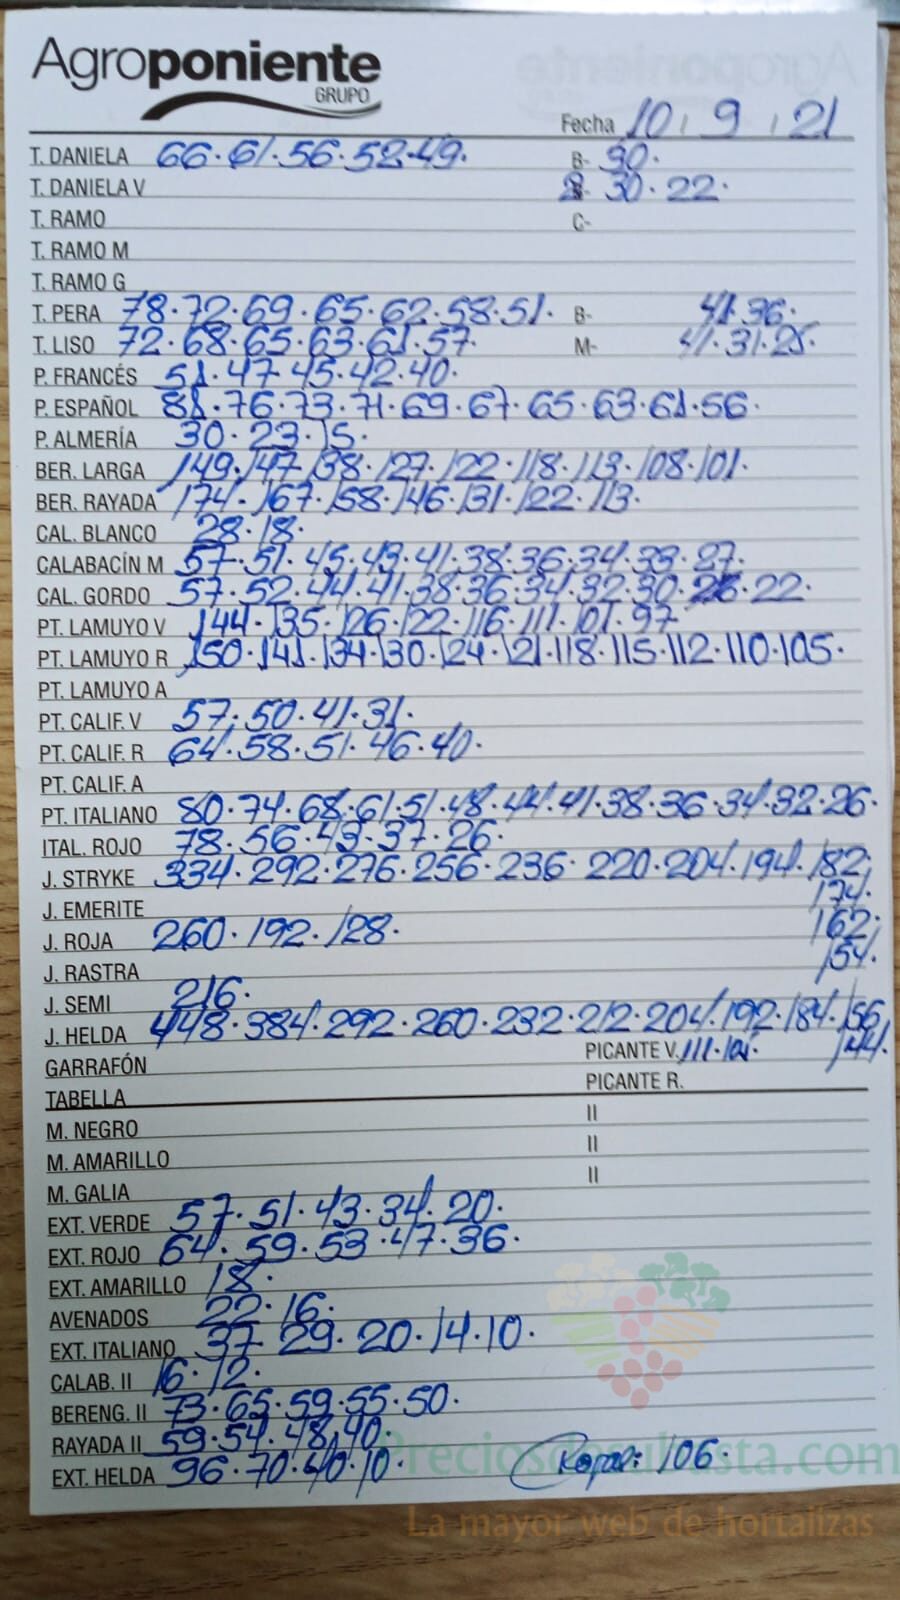 Agroponiente
GRUPO
Fecha 10 / 9 / 21
T. DANIELA 66·61·56·52·49· B- 30·
T. DANIELA V 30·22·
T. RAMO C-
T. RAMO M
T. RAMO G
T. PERA 78·72·69·65·62·58·51· B- 41·36·
T. LISO 72·68·65·63·61·57· M- 41·31·25·
P. FRANCÉS 51·47·45·42·40·
P. ESPAÑOL 81·76·73·71·69·67·65·63·61·56·
P. ALMERÍA 30·23·15·
BER. LARGA 149·147·138·127·122·118·113·108·101·
BER. RAYADA 174·167·158·146·131·122·113·
CAL. BLANCO 28·18·
CALABACÍN M 57·51·45·43·41·38·36·34·33·27·
CAL. GORDO 57·52·44·41·38·36·34·32·30·26·22·
PT. LAMUYO V 144·135·126·122·116·111·101·97
PT. LAMUYO R 150·141·134·130·124·121·118·115·112·110·105·
PT. LAMUYO A
PT. CALIF. V 57·50·41·31·
PT. CALIF. R 64·58·51·46·40·
PT. CALIF. A
PT. ITALIANO 80·74·68·61·51·48·44·41·38·36·34·32·26·
ITAL. ROJO 78·56·43·37·26·
J. STRYKE 334·292·276·256·236·220·204·194·182·
J. EMERITE 174·
J. ROJA 260·192·128· 162·
J. RASTRA 154·
J. SEMI 216·
J. HELDA 448·384·292·260·232·212·204·192·184·156
GARRAFÓN PICANTE V. 111·101· 144·
TABELLA PICANTE R.
M. NEGRO II
M. AMARILLO II
M. GALIA II
EXT. VERDE 57·51·43·34·20·
EXT. ROJO 64·59·53·47·36·
EXT. AMARILLO 18·
AVENADOS 22·16·
EXT. ITALIANO 37·29·20·14·10·
CALAB. II 16·12·
BERENG. II 73·65·59·55·50·
RAYADA II 59·54·48·40·
EXT. HELDA 96·70·40·10· 106·
Preciosdesubasta.com
La mayor web de hortalizas